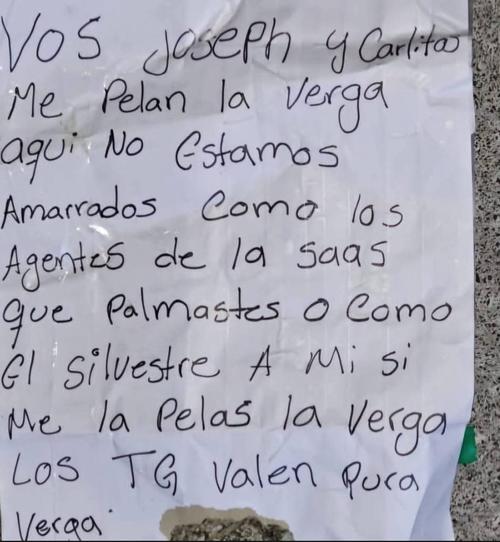 Vos Joseph y Carlitos
Me Pelan la verga
aqui No Estamos
Amarrados Como los
Agentes de la saas
que Palmastes o Como
El Silvestre A Mi si
Me la Pelas la Verga
Los TG Valen Pura
Verga